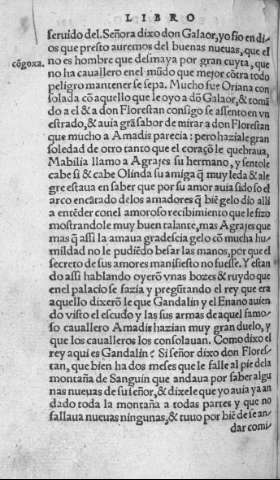 LIBRO
seruido del. Señora dixo don Galaor, yo fio en di
os que presto auremos del buenas nueuas, que el
cõgoxa.
no es hombre que desmaya por gran cuyta, que
no ha cauallero enel mũdo que mejor cõtra todo
peligro mantener se sepa. Mucho fue Oriana con
solada cõ aquello que le oyo a dõ Galaor, & tomã
do a el & a don Florestan consigo se assento en vn
estrado, & auia grã sabor de mirar a don Florestan
que mucho a Amadis parecia: pero hazia le gran
soledad de otro tanto que el coraçõ le quebraua,
Mabilia llamo a Agrajes su hermano, y sentole
cabe si & cabe Olinda su amiga q̃ muy leda & ale
gre estaua en saber que por su amor auia sido so el
arco encãtado delos amadores q̃ biẽ gelo dio alli
a entẽder conel amoroso recibimiento que le fizo
mostrandole muy buen talante, mas Agrajes que
mas q̃ assi la amaua gradescia gelo cõ mucha hu
mildad no le pudiẽdo besar las manos, por que el
secreto de sus amores manifiesto no fuesse. Y estan
do assi hablando oyerõ vnas bozes & ruydo que
enel palacio se fazia y pregũtando el rey que era
aquello dixerõ le que Gandalin y el Enano auien
do visto el escudo y las sus armas de aquel famo
so cauallero Amadis hazian muy gran duelo, y
que los caualleros los consolauan. Como dixo el
rey aqui es Gandalin? Si señor dixo don Flores
tan, que bien ha dos meses que le falle al pie dela
montaña de Sanguin que andaua por saber algu
nas nueuas de su señor, & dixele que yo auia ya an
dado toda la montaña a todas partes y que no
fallaua nueuas ningunas, & tuuo por biẽ de se an
dar comi